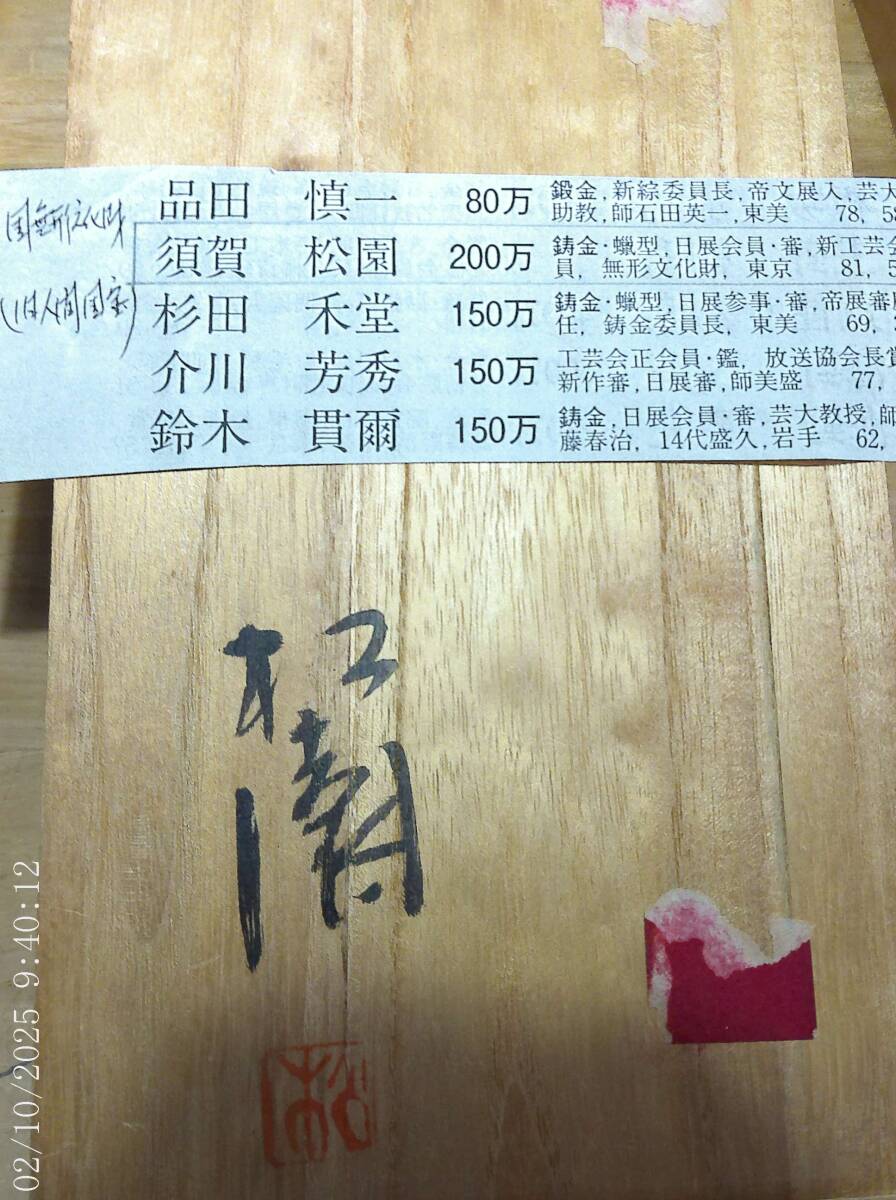 品田 慎一 80万 鍛金,新綜委員長,帝文展入,芸大
助教,師石田英一,東美 78, 58
国無形文化財
須賀 松園 200万 鋳金·蠟型,日展会員·審,新工芸会
員, 無形文化財, 東京 81, 5
(1は人間国宝)
杉田 禾堂 150万 鋳金·蠟型,日展参事·審,帝展審
任, 鋳金委員長, 東美 69,
介川 芳秀 150万 工芸会正会員·鑑, 放送協会長賞
新作審,日展審,師美盛 77,
鈴木 貫爾 150万 鋳金,日展会員·審,芸大教授,師
藤春治, 14代盛久,岩手 62,
松園
松
02/10/2025 9:40:12